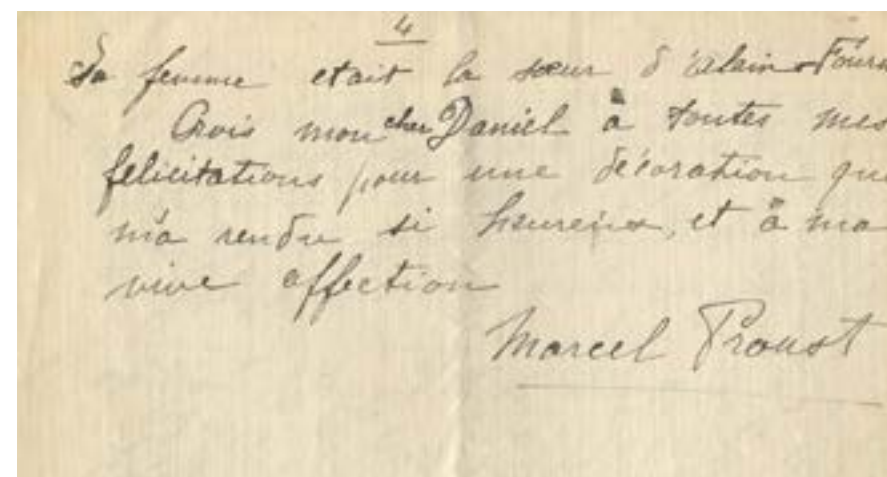 4
Sa femme etait la sœur d'Alain-Fourn
Crois mon cher Daniel à toutes mes
félicitations pour une décoration qui
m'a rendu si heureux, et à ma
vive affection
Marcel Proust